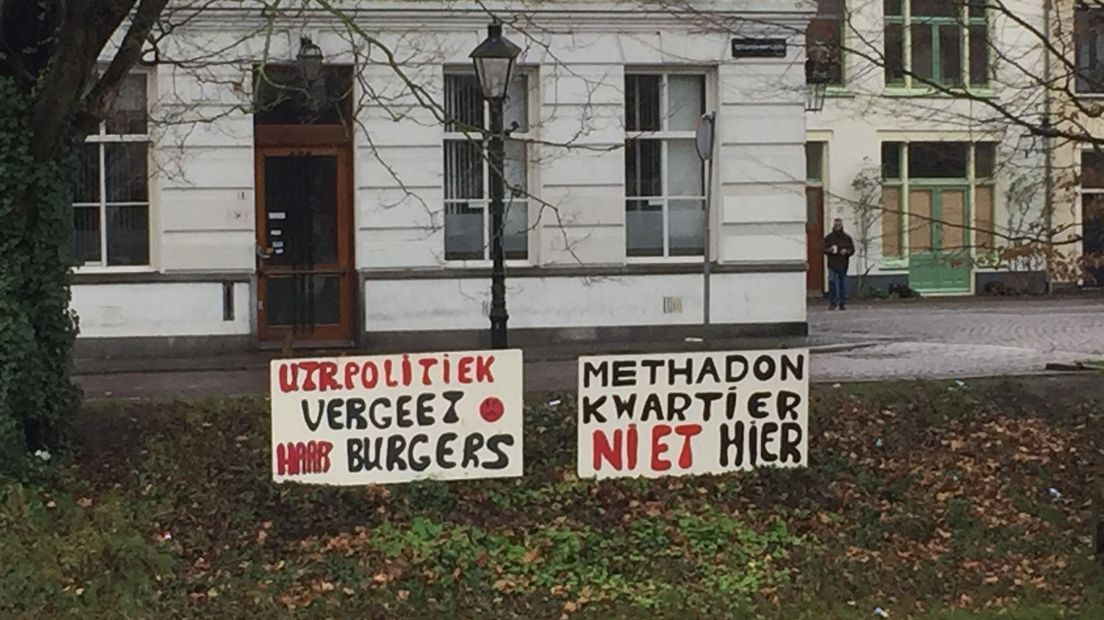 UTR.POLITIEK
VERGEET
HAAR BURGERS
METHADON
KWARTIER
NIET HIER